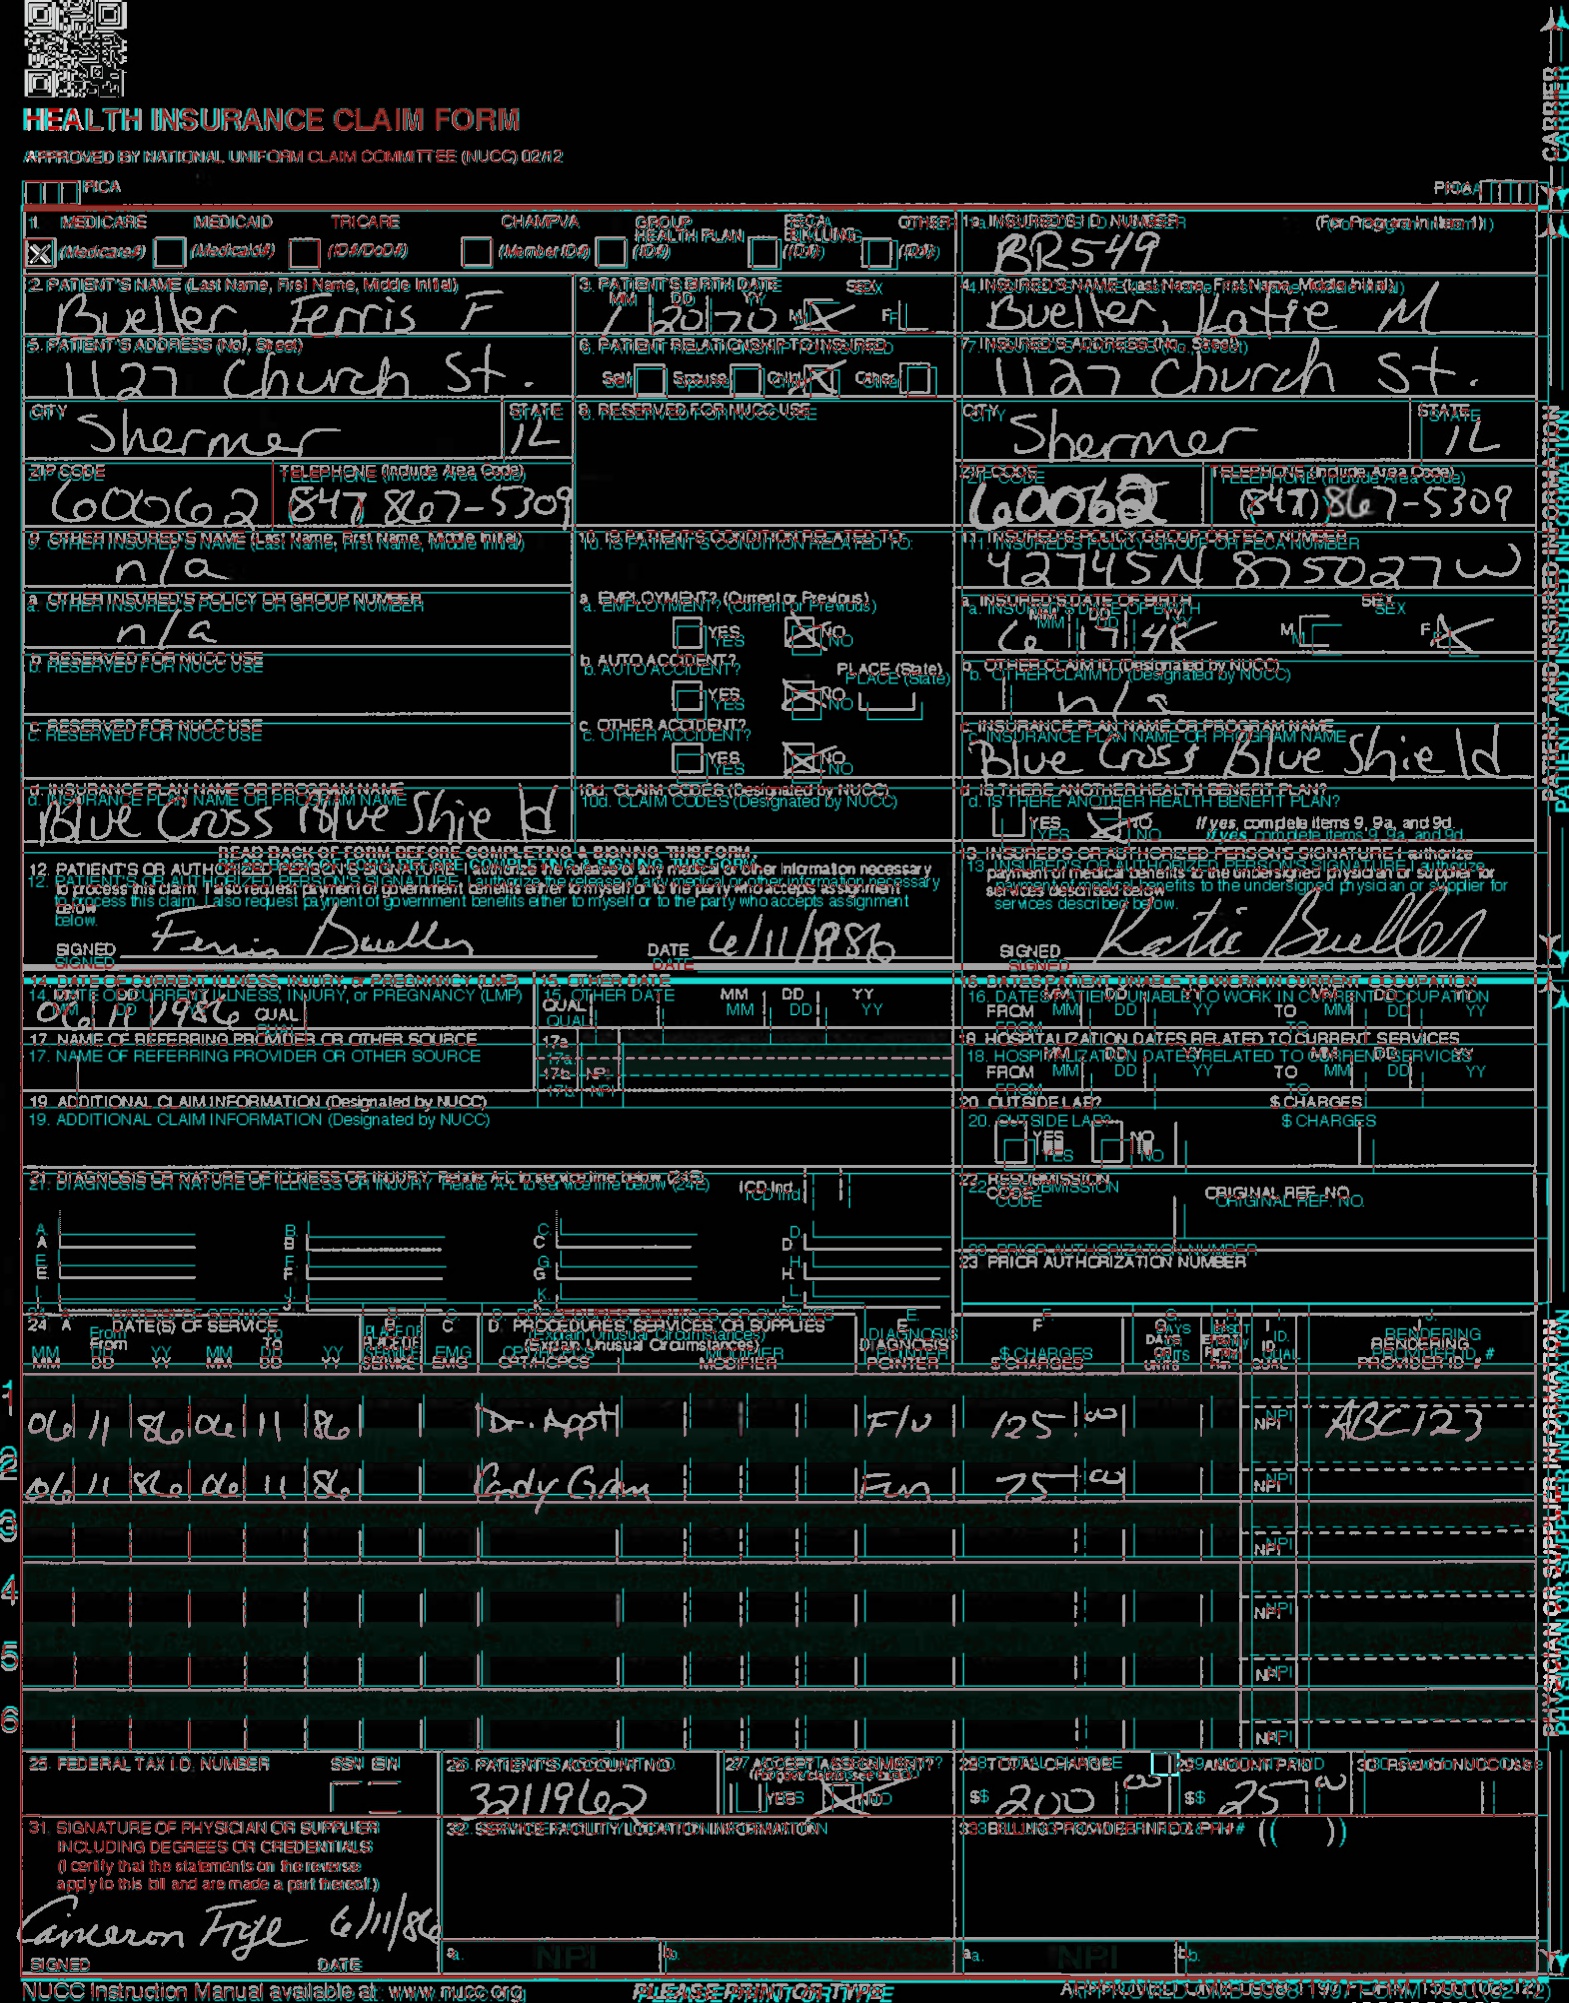 HEALTH INSURANCE CLAIM FORM
APPROVED BY NATIONAL UNIFORM CLAIM COMMITTEE (NUCC) 02/12
PICA PICA
CARRIER
1. MEDICARE MEDICAID TRICARE CHAMPVA GROUP HEALTH PLAN FECA BLK LUNG OTHER
(Medicare#) (Medicaid#) (ID#/DoD#) (Member ID#) (ID#) (ID#) (ID#)
1a. INSURED'S I.D. NUMBER (For Program in Item 1)
BR549
2. PATIENT'S NAME (Last Name, First Name, Middle Initial)
Bueller, Ferris F
3. PATIENT'S BIRTH DATE SEX
MM DD YY M F
1 20 70
4. INSURED'S NAME (Last Name, First Name, Middle Initial)
Bueller, Katie M
5. PATIENT'S ADDRESS (No., Street)
1127 Church St.
6. PATIENT RELATIONSHIP TO INSURED
Self Spouse Child Other
7. INSURED'S ADDRESS (No., Street)
1127 Church St.
CITY STATE
Shermer IL
8. RESERVED FOR NUCC USE
CITY STATE
Shermer IL
ZIP CODE TELEPHONE (Include Area Code)
60062 (847) 867-5309
ZIP CODE TELEPHONE (Include Area Code)
60062 (847) 867-5309
9. OTHER INSURED'S NAME (Last Name, First Name, Middle Initial)
n/a
10. IS PATIENT'S CONDITION RELATED TO:
11. INSURED'S POLICY GROUP OR FECA NUMBER
42745N 875027W
a. OTHER INSURED'S POLICY OR GROUP NUMBER
n/a
a. EMPLOYMENT? (Current or Previous)
YES NO
a. INSURED'S DATE OF BIRTH SEX
MM DD YY M F
6 17 48
b. RESERVED FOR NUCC USE
b. AUTO ACCIDENT? PLACE (State)
YES NO
b. OTHER CLAIM ID (Designated by NUCC)
n/a
c. RESERVED FOR NUCC USE
c. OTHER ACCIDENT?
YES NO
c. INSURANCE PLAN NAME OR PROGRAM NAME
Blue Cross Blue Shield
d. INSURANCE PLAN NAME OR PROGRAM NAME
Blue Cross Blue Shield
10d. CLAIM CODES (Designated by NUCC)
d. IS THERE ANOTHER HEALTH BENEFIT PLAN?
YES NO If yes, complete items 9, 9a, and 9d.
PATIENT AND INSURED INFORMATION
READ BACK OF FORM BEFORE COMPLETING & SIGNING THIS FORM.
12. PATIENT'S OR AUTHORIZED PERSON'S SIGNATURE I authorize the release of any medical or other information necessary
to process this claim. I also request payment of government benefits either to myself or to the party who accepts assignment
below.
SIGNED Ferris Bueller DATE 6/11/1986
13. INSURED'S OR AUTHORIZED PERSON'S SIGNATURE I authorize
payment of medical benefits to the undersigned physician or supplier for
services described below.
SIGNED Katie Bueller
14. DATE OF CURRENT ILLNESS, INJURY, or PREGNANCY (LMP)
MM DD YY QUAL.
06 11 1986
15. OTHER DATE
QUAL. MM DD YY
16. DATES PATIENT UNABLE TO WORK IN CURRENT OCCUPATION
MM DD YY MM DD YY
FROM TO
17. NAME OF REFERRING PROVIDER OR OTHER SOURCE
17a.
17b. NPI
18. HOSPITALIZATION DATES RELATED TO CURRENT SERVICES
MM DD YY MM DD YY
FROM TO
19. ADDITIONAL CLAIM INFORMATION (Designated by NUCC)
20. OUTSIDE LAB? $ CHARGES
YES NO
21. DIAGNOSIS OR NATURE OF ILLNESS OR INJURY Relate A-L to service line below (24E) ICD Ind.
A. B. C. D.
E. F. G. H.
I. J. K. L.
22. RESUBMISSION CODE ORIGINAL REF. NO.
23. PRIOR AUTHORIZATION NUMBER
24. A. DATE(S) OF SERVICE B. C. D. PROCEDURES, SERVICES, OR SUPPLIES E. F. G. H. I. J.
From To PLACE OF (Explain Unusual Circumstances) DIAGNOSIS DAYS OR EPSDT ID. RENDERING
MM DD YY MM DD YY SERVICE EMG CPT/HCPCS MODIFIER POINTER $ CHARGES UNITS Family Plan QUAL. PROVIDER ID. #
1 06 11 86 06 11 86 Dr. Appt F/U 125 00 NPI ABC123
2 06 11 86 06 11 86 Candy Gram Fun 75 00 NPI
3 NPI
4 NPI
5 NPI
6 NPI
PHYSICIAN OR SUPPLIER INFORMATION
25. FEDERAL TAX I.D. NUMBER SSN EIN
26. PATIENT'S ACCOUNT NO.
3211962
27. ACCEPT ASSIGNMENT?
(For govt. claims, see back)
YES NO
28. TOTAL CHARGE
$ 200 00
29. AMOUNT PAID
$ 25 00
30. Rsvd for NUCC Use
31. SIGNATURE OF PHYSICIAN OR SUPPLIER
INCLUDING DEGREES OR CREDENTIALS
(I certify that the statements on the reverse
apply to this bill and are made a part thereof.)
Cameron Frye 6/11/86
SIGNED DATE
32. SERVICE FACILITY LOCATION INFORMATION
a. NPI b.
33. BILLING PROVIDER INFO & PH # ( )
a. NPI b.
NUCC Instruction Manual available at: www.nucc.org
PLEASE PRINT OR TYPE